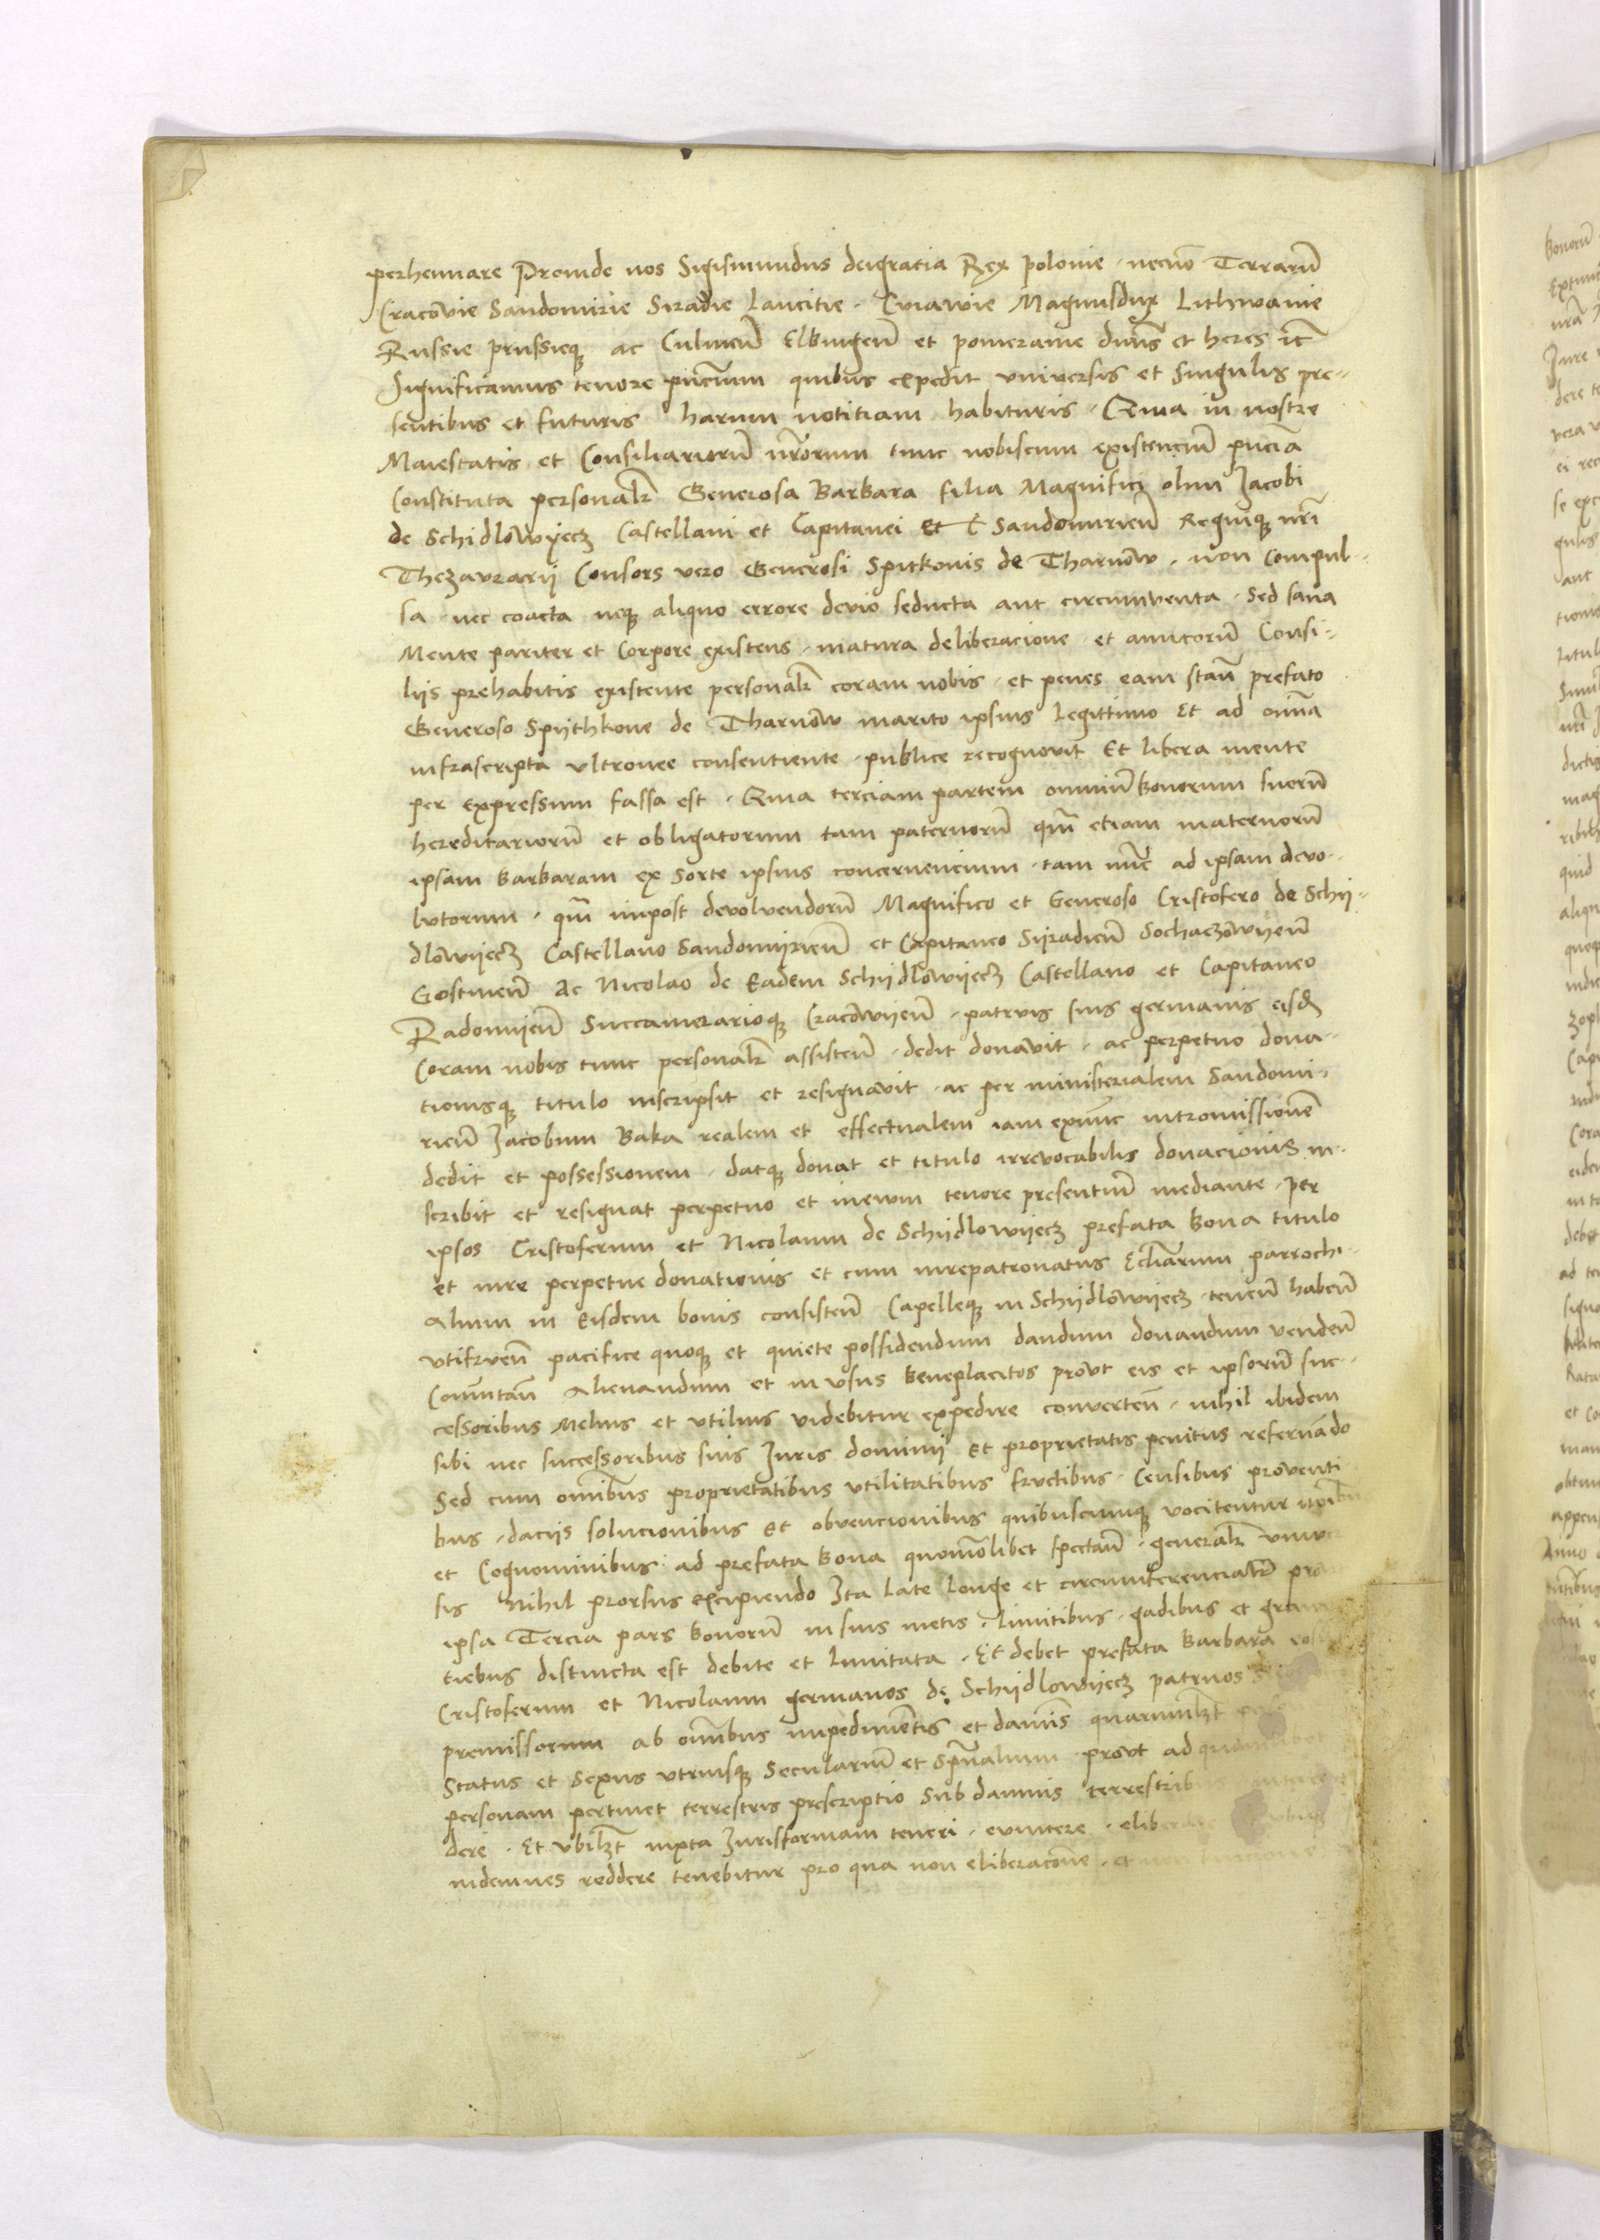 perhennare Proinde nos Sigismundus deigratia Rex polonie necno Terrarũ
Cracovie Sandomirie Siradie Lancitie Cuiavie Magnusdux Lithwanie
Russie prussieqꝫ ac Culmeñ Elbingeñ et pomeranie dnus et heres ꝛc̃
Significamus tenore pñcium quibus expedit universis et singulis pre-
sentibus et futuris harum notitiam habituris Quia in nostre
Maiestatis et Consiliariorũ nr̃orum tunc nobiscum existenciũ pñcia
Constituta personalr̃ Generosa Barbara filia Magnifici olim Jacobi
de Schidlowyecz Castellani et Capitanei Et Sandomirieñ Regniqꝫ nr̃i
Thezavrarii Consors vero Generosi Spitkonis de Tharnow non Compul-
sa nec coacta neqꝫ aliquo errore devio seducta aut circumventa Sed sana
Mente pariter et Corpore existens matura deliberacione et amicorũ Consi-
liis prehabitis existente personalr̃ coram nobis et penes eam stañ prefato
Generoso Spythkone de Tharnow marito ipsius Legittimo Et ad omnia
infrascripta ultronee consentiente publice recognovit Et libera mente
per expressum fassa est Quia terciam partem omniũ bonorum suorũ
hereditariorũ et obligatorum tam paternorũ qm̃ etiam maternorũ
ipsam Barbaram ex sorte ipsius concernencium tam nũc ad ipsam devo-
lutorum qm̃ inpost devolvendorũ Magnifico et Generoso Cristofero de Schy-
dlowyecz Castellano Sandomyrieñ et Capitaneo Syradieñ Sochaczowyeñ
Gostineñ Ac Nicolao de Eadem Schydlowyecz Castellano et Capitaneo
Radomyeñ Succamerarioqꝫ Cracowyeñ patruis suis germanis eisdẽ
Coram nobis tunc personalr̃ assisteñ dedit donavit ac perpetuo dona-
tionisqꝫ titulo inscripsit et resignavit ac per ministerialem Sandomi-
rieñ Jacobum Baka realem et effectualem iam extunc intromissionẽ
dedit et possessionem datqꝫ donat et titulo irrevocabilis donacionis in-
scribit et resignat perpetuo et inevum tenore presentiũ mediante per
ipsos Cristoferum et Nicolaum de Schydlowyecz prefata bona titulo
et iure perpetue donationis et cum iurepatronatus Ecl̃iarum parrochi-
alium in Eisdem bonis consisteñ Capelleqꝫ in Schydlowyecz teneñ habeñ
utifrueñ pacifice quoqꝫ et quiete possidendum dandum donandum vendeñ
Com̃utañ Alienandum et in usus beneplacitos prout eis et ipsorũ suc-
cessoribus Melius et utilius videbitur expedire converteñ nihil ibidem
sibi nec successoribus suis Juris dominii Et proprietatis penitus reservando
Sed cum omĩbus proprietatibus utilitatibus fructibus Censibus proventi-
bus daciis solucionibus Et obvencionibus quibuscumqꝫ vocitentur
et Cognominibus ad prefata bona quomõlibet spectañ generalr̃
sis Nihil prorsus excipiendo Ita Late Longe et circumferencialr̃
ipsa Tercia pars bonorũ in suis metis limitibus gadibus et
ciebus distincta est debite et limitata Et debet prefata Barbara
Cristoferum et Nicolaum germanos de Schydlowyecz patruos
premissorum ab omĩbus impedimẽtis et damnis quarumlzt
Status et Sexus utriusqꝫ Seculariũ et Spũalium prout ad quamlibet
personam pertinet terrestris prescriptio Sub damnis terrestrib
dere Et ubilzt iuxta Jurisformam teneri evincere
indemnes reddere tenebitur pro qua non eliberacõne et